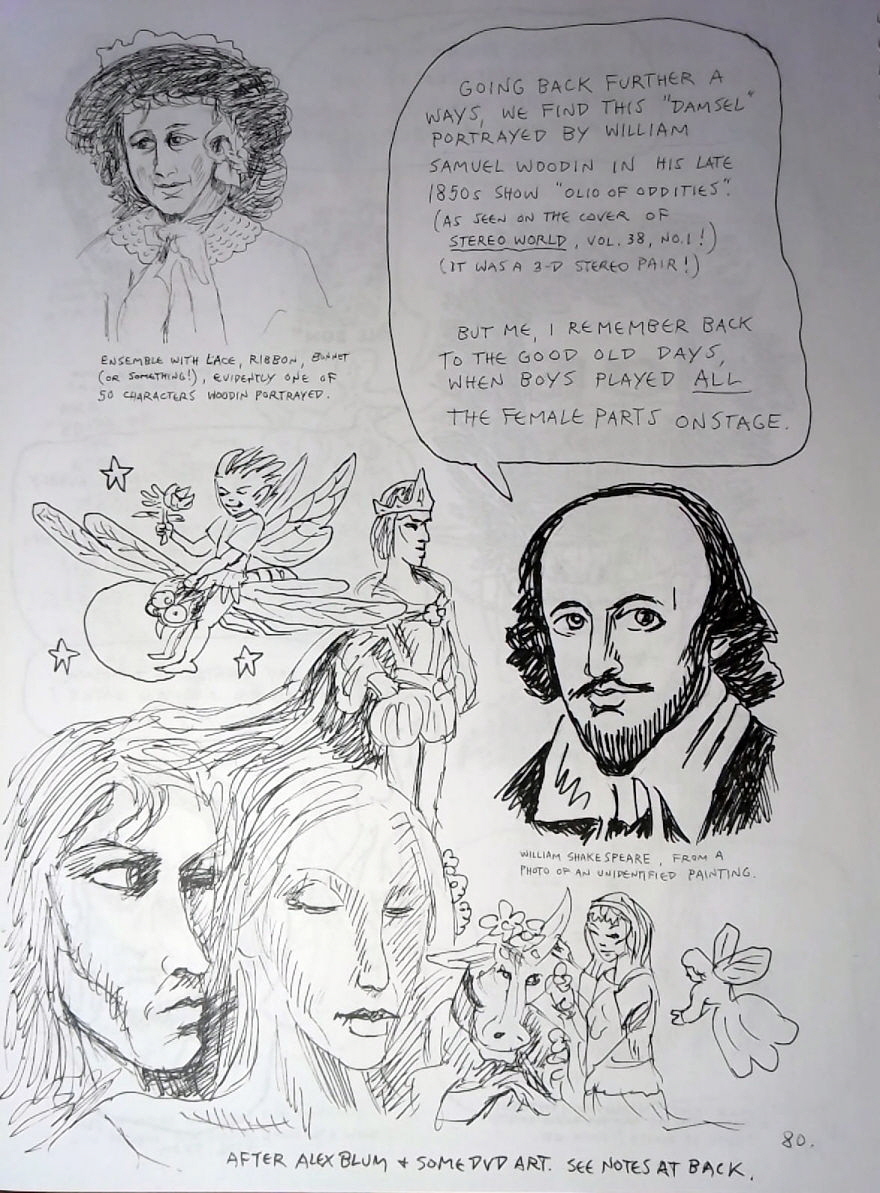 GOING BACK FURTHER A
WAYS, WE FIND THIS "DAMSEL"
PORTRAYED BY WILLIAM
SAMUEL WOODIN IN HIS LATE
1850s SHOW "OLIO OF ODDITIES".
(AS SEEN ON THE COVER OF
STEREO WORLD, VOL. 38, NO.1!)
(IT WAS A 3-D STEREO PAIR!)
BUT ME, I REMEMBER BACK
TO THE GOOD OLD DAYS,
WHEN BOYS PLAYED ALL
THE FEMALE PARTS ONSTAGE.
ENSEMBLE WITH LACE, RIBBON, BONNET
(OR SOMETHING!), EVIDENTLY ONE OF
50 CHARACTERS WOODIN PORTRAYED.
WILLIAM SHAKESPEARE, FROM A
PHOTO OF AN UNIDENTIFIED PAINTING.
80.
AFTER ALEX BLUM + SOME DVD ART. SEE NOTES AT BACK.